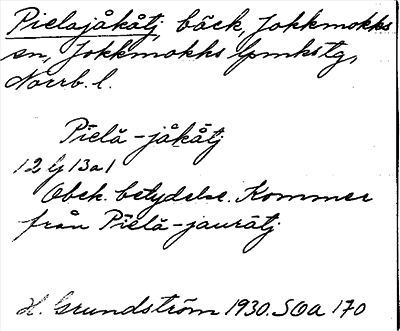 Pielajåkåtj, bäck, Jokkmokks
sn, Jokkmokks lpmkstg,
Norrb. l.
Pīelā-jåkåtj
12 lj 13a1
Obek. betydelse. Kommer
från Pīelā-jaurātj
H. Grundström 1930. SOA 170